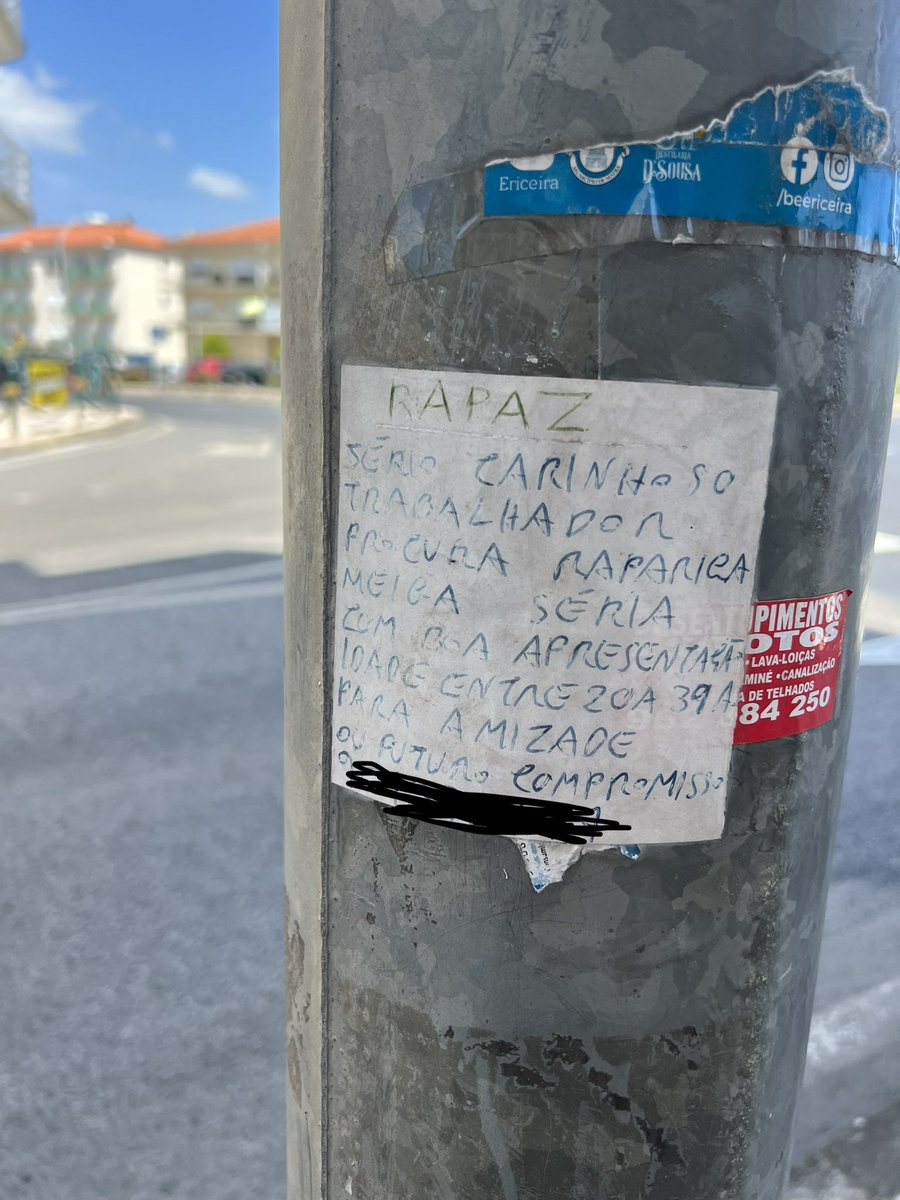 Ericeira
D'SOUSA
/beericeira
RAPAZ
SÉRIO CARINHOSO
TRABALHADOR
PROCURA RAPARIGA
MEIGA SÉRIA
COM BOA APRESENTAÇÃO
IDADE ENTRE 20 A 39 A.
PARA AMIZADE
OU FUTURO COMPROMISSO
UPIMENTOS
OTOS
• LAVA-LOIÇAS
MINÉ • CANALIZAÇÃO
A DE TELHADOS
84 250